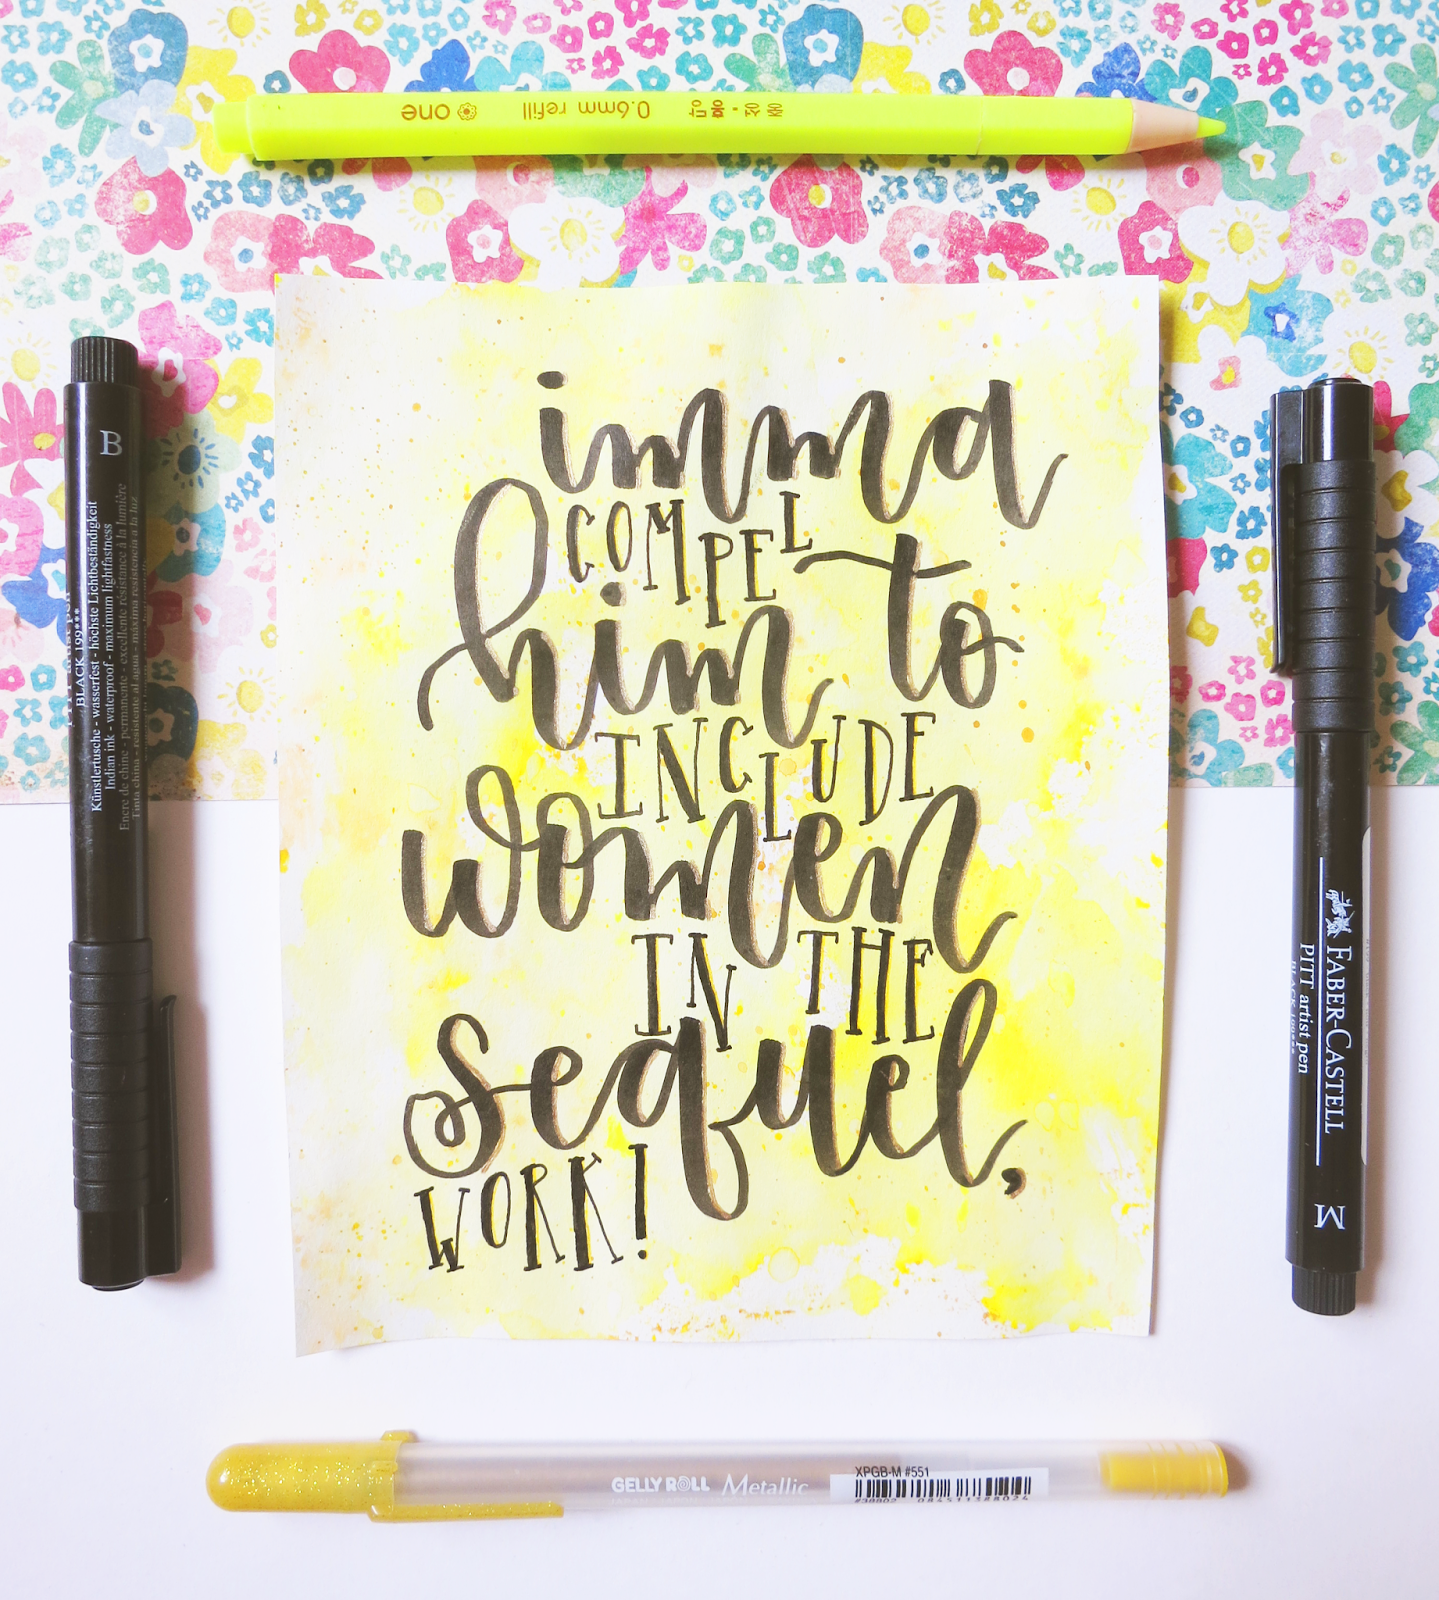 one 0.6mm refill
imma
COMPEL
him to
INCLUDE
women
IN THE
sequel,
WORK!
B
BLACK 199***
Künstlertusche - wasserfest - höchste Lichtbeständigkeit
Indian ink - waterproof - maximum lightfastness
Encre de chine - permanente - excellente résistance à la lumière
Tinta china - resistente al agua - máxima resistencia a la luz
FABER-CASTELL
PITT artist pen
BLACK 199***
M
GELLY ROLL Metallic
XPGB-M #551
#38802 084511388024